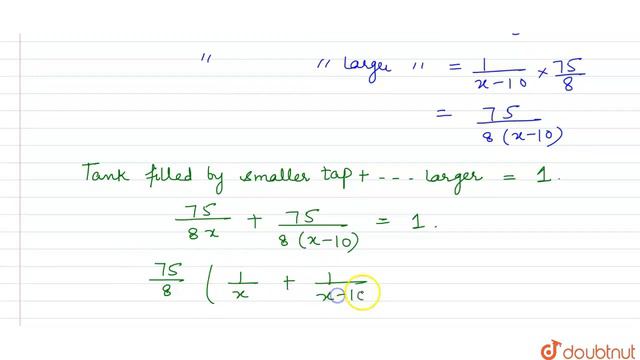 " " larger " = 1/(x-10) × 75/8
= 75/(8(x-10))
Tank filled by smaller tap + --- larger = 1.
75/(8x) + 75/(8(x-10)) = 1.
75/8 ( 1/x + 1/(x-10
doubtnut